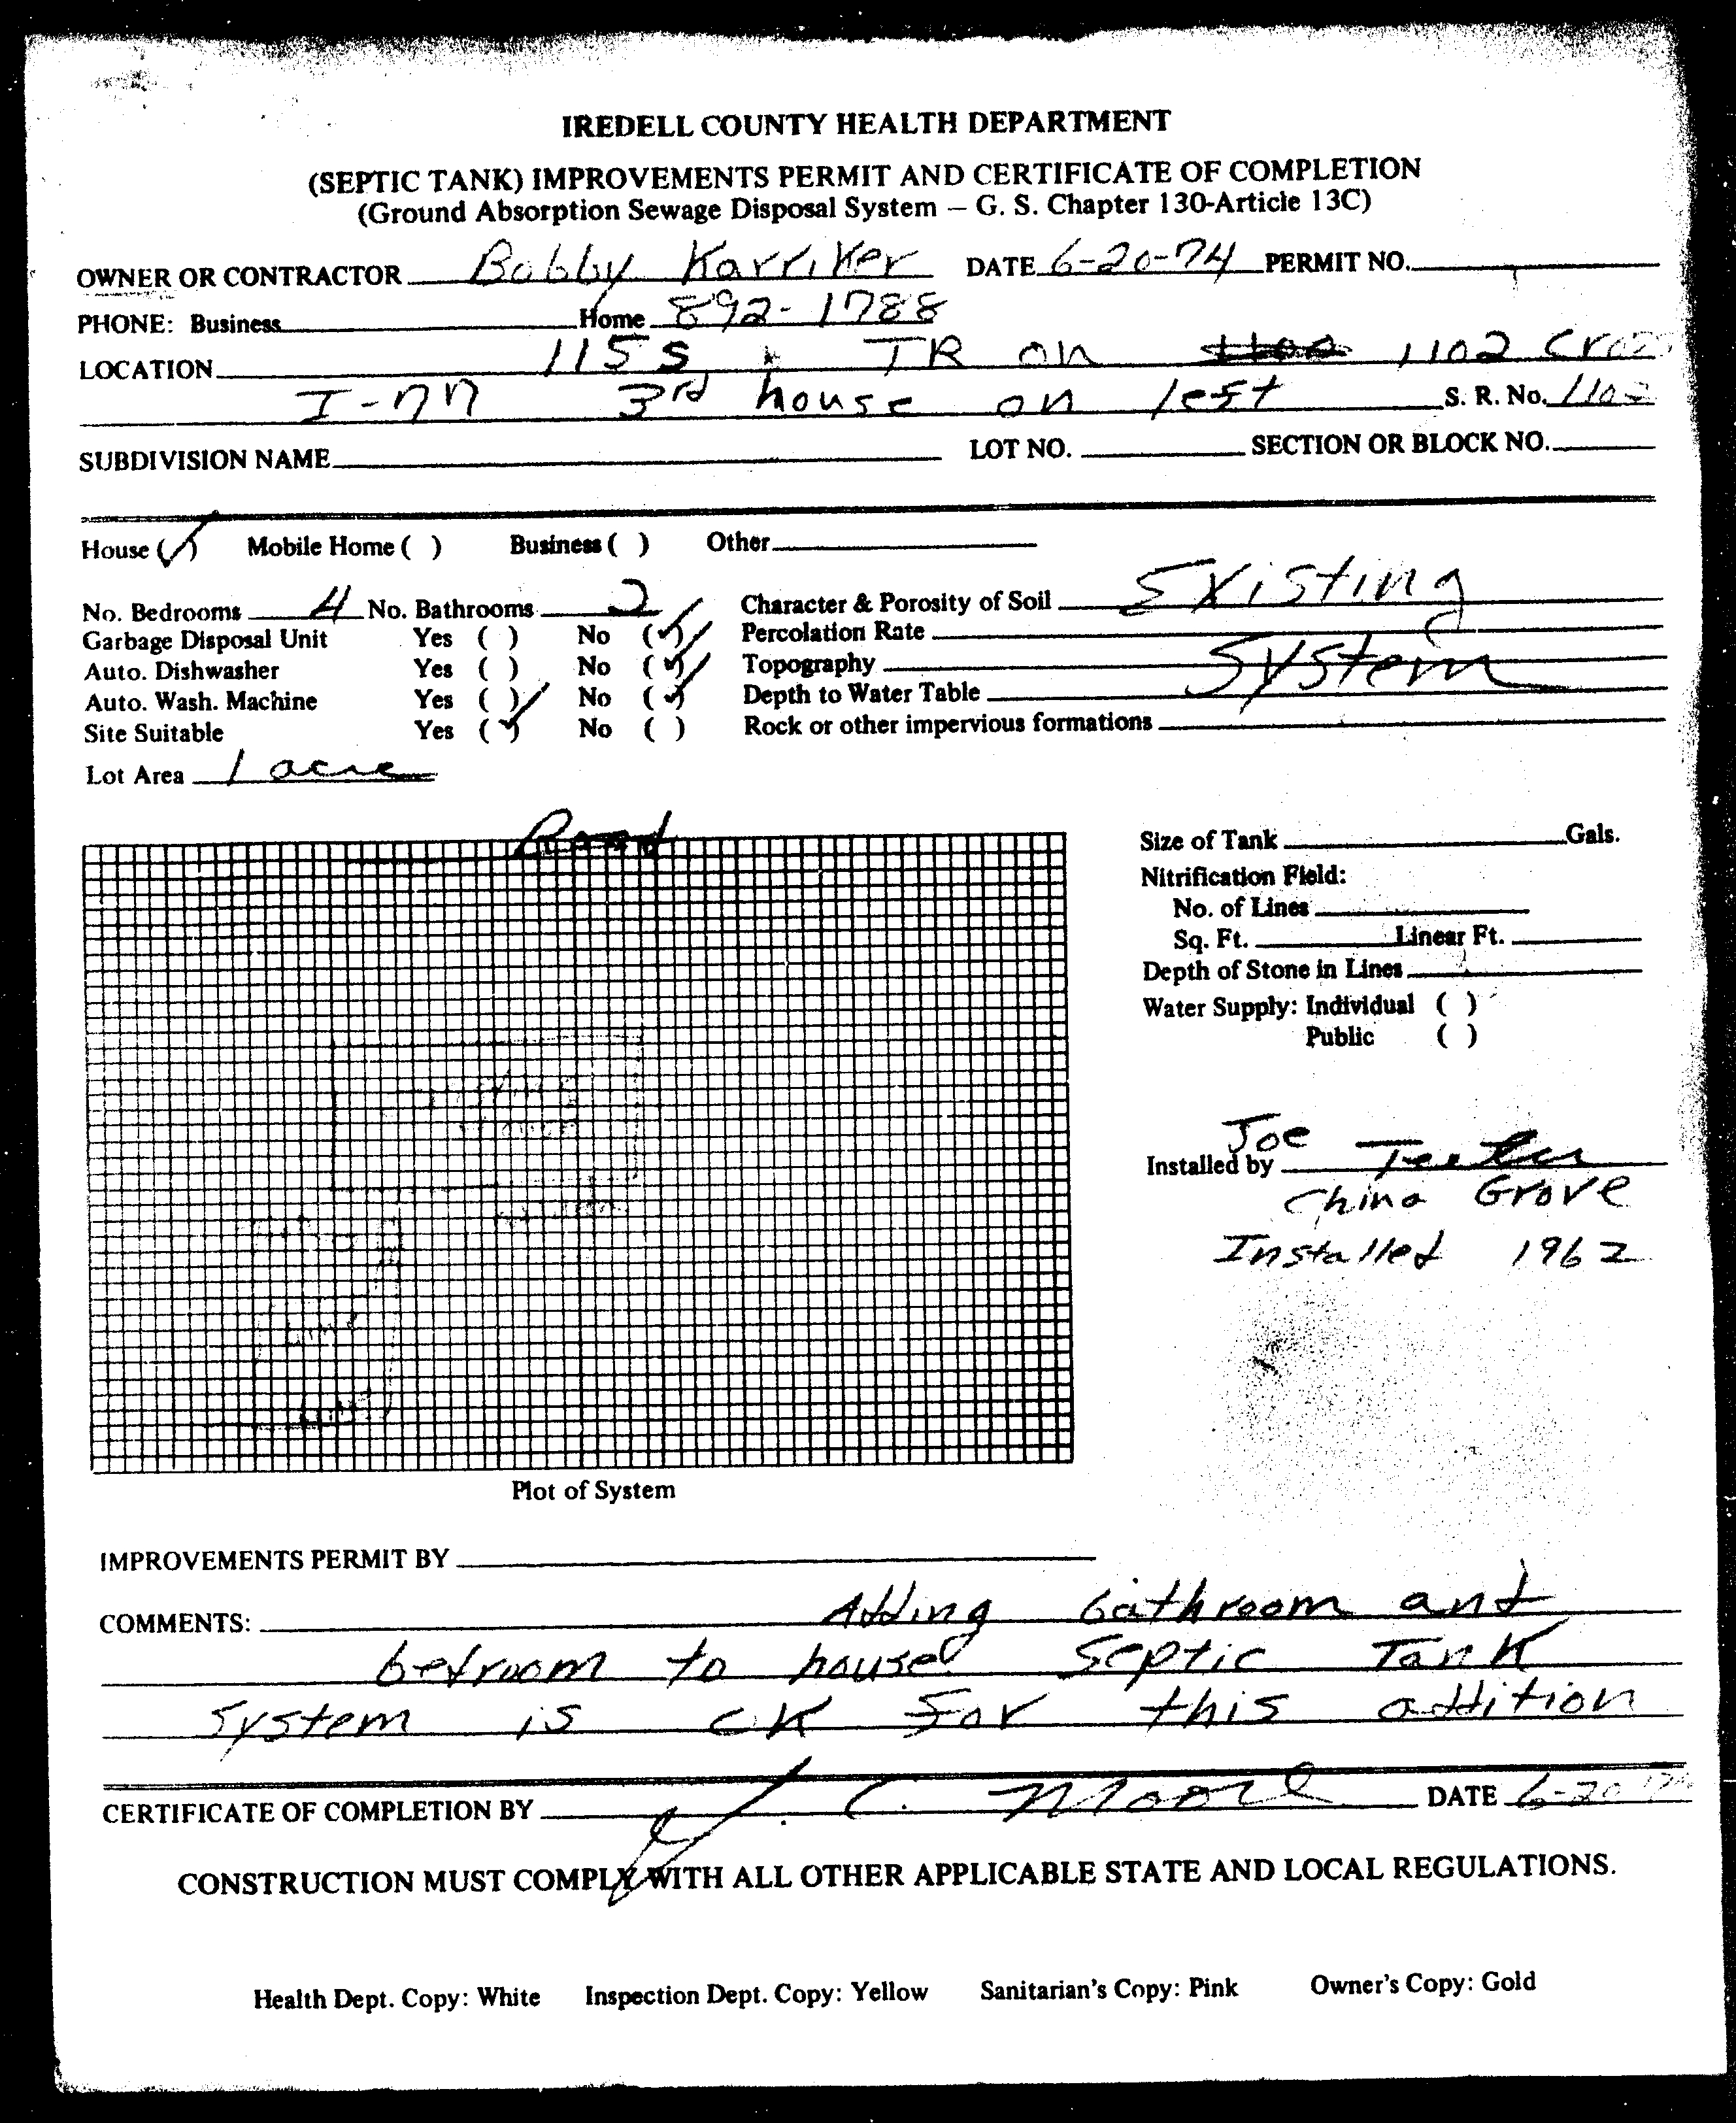 IREDELL COUNTY HEALTH DEPARTMENT
(SEPTIC TANK) IMPROVEMENTS PERMIT AND CERTIFICATE OF COMPLETION
(Ground Absorption Sewage Disposal System – G. S. Chapter 130-Article 13C)
OWNER OR CONTRACTOR Bobby Karriker DATE 6-20-74 PERMIT NO.
PHONE: Business Home 892-1788
LOCATION 115 S TR on 1102 Cross
I-77 3rd house on left S. R. No. 1102
SUBDIVISION NAME LOT NO. SECTION OR BLOCK NO.
House (✓) Mobile Home ( ) Business ( ) Other
No. Bedrooms 4 No. Bathrooms 2 Character & Porosity of Soil Existing
Garbage Disposal Unit Yes ( ) No (✓) Percolation Rate
Auto. Dishwasher Yes ( ) No (✓) Topography System
Auto. Wash. Machine Yes ( ) No (✓) Depth to Water Table
Site Suitable Yes (✓) No ( ) Rock or other impervious formations
Lot Area 1 acre
Road
Size of Tank Gals.
Nitrification Field:
No. of Lines
Sq. Ft. Linear Ft.
Depth of Stone in Lines
Water Supply: Individual ( )
Public ( )
Installed by Joe Teeter
China Grove
Installed 1962
Plot of System
IMPROVEMENTS PERMIT BY
COMMENTS: Adding bathroom and
bedroom to house. Septic Tank
System is OK for this addition
CERTIFICATE OF COMPLETION BY C. Moore DATE 6-20-74
CONSTRUCTION MUST COMPLY WITH ALL OTHER APPLICABLE STATE AND LOCAL REGULATIONS.
Health Dept. Copy: White Inspection Dept. Copy: Yellow Sanitarian's Copy: Pink Owner's Copy: Gold